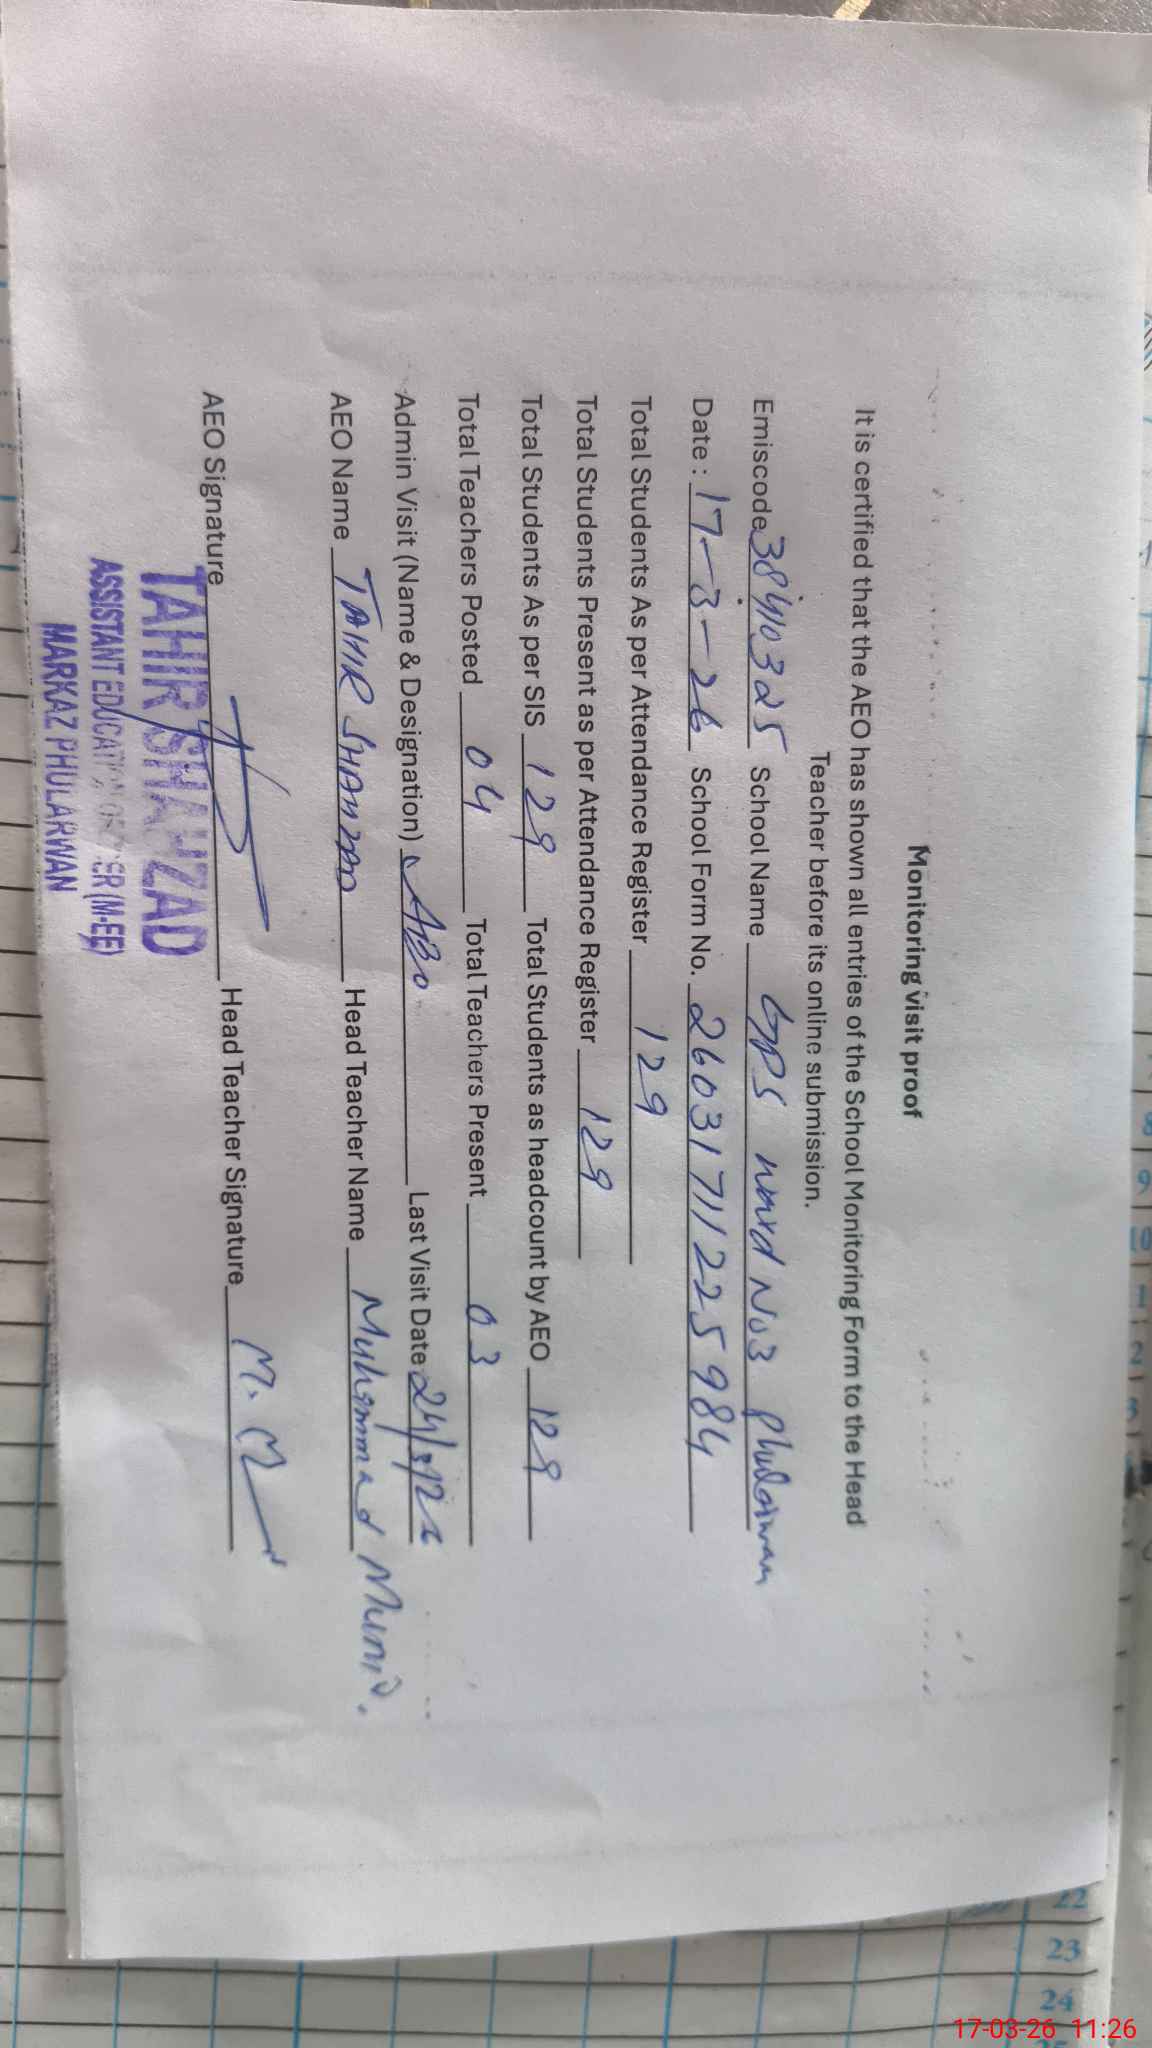 Monitoring visit proof
It is certified that the AEO has shown all entries of the School Monitoring Form to the Head
Teacher before its online submission.
Emiscode 38410325 School Name GPS ward No3 Phularwan
Date : 17-3-26 School Form No. 26031711225984
Total Students As per Attendance Register 129
Total Students Present as per Attendance Register 129
Total Students As per SIS 129 Total Students as headcount by AEO 129
Total Teachers Posted 04 Total Teachers Present 03
Admin Visit (Name & Designation) Last Visit Date
AEO Name TAHIR SHAHZAD Head Teacher Name Muhammad Munir.
AEO Signature Head Teacher Signature M. M
TAHIR SHAHZAD
ASSISTANT EDUCATION OFFICER (M-EE)
MARKAZ PHULARWAN
8
9
10
22
23
24
17-03-26 11:26